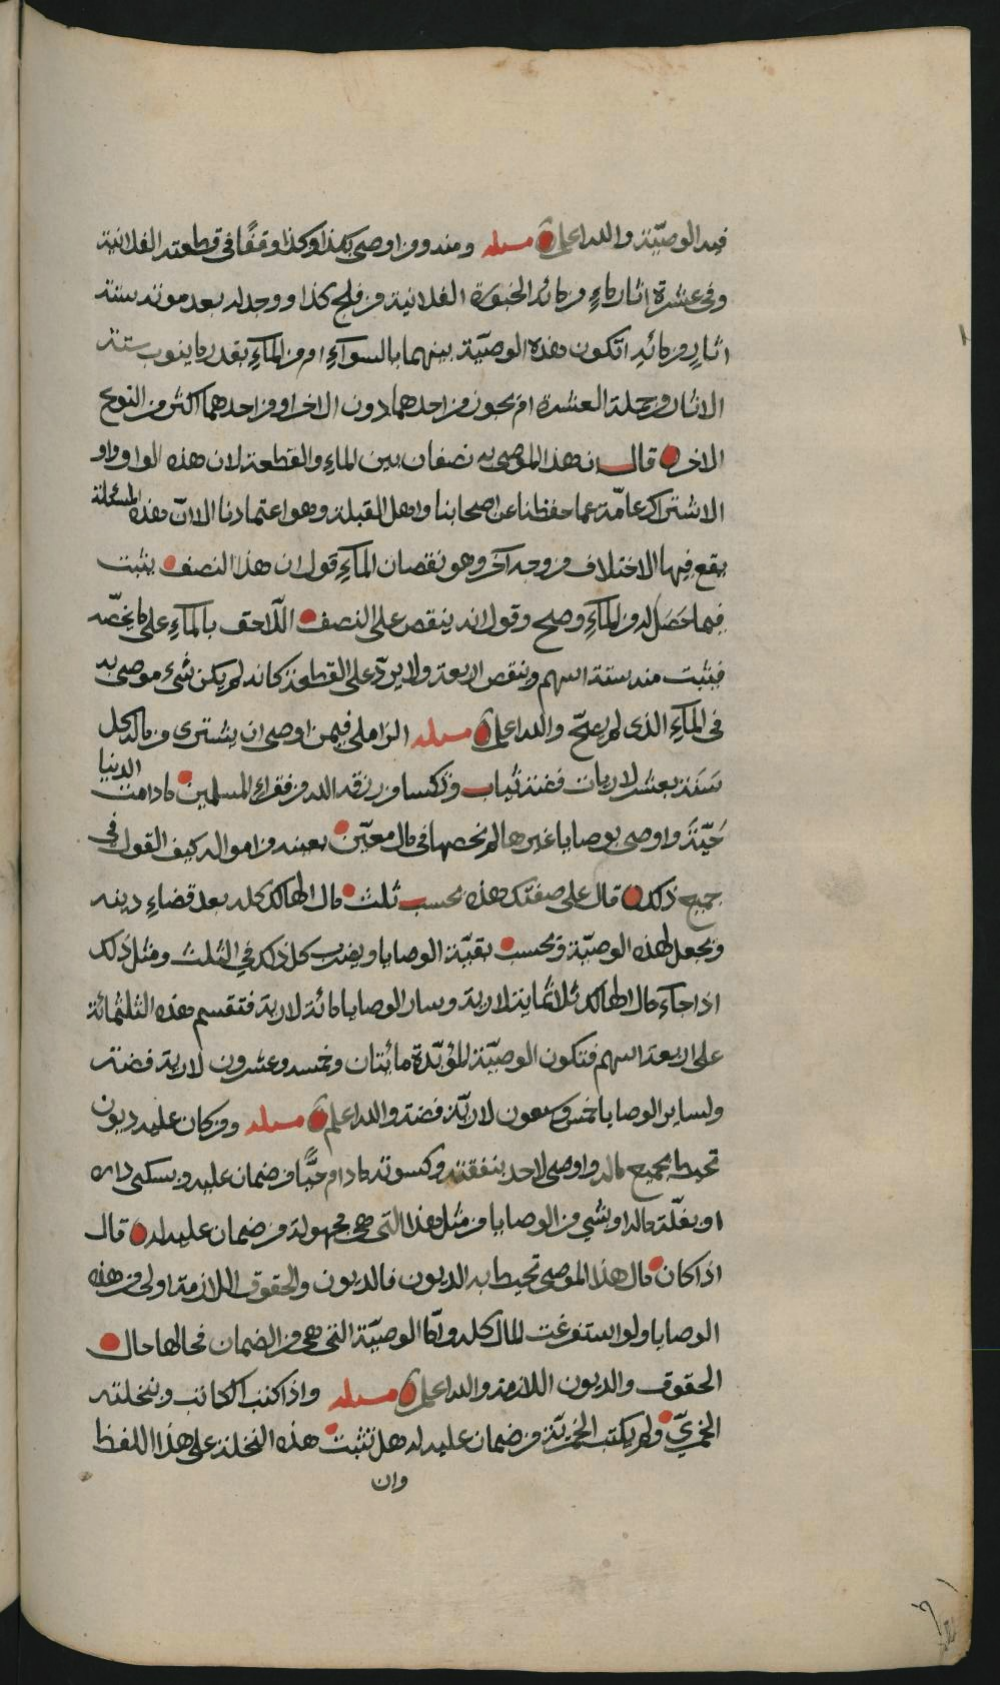 فيه الوصيّة والله اعلم مسئلة ومنه ومن اوصى بكذا وكذا وقفًا في قطعته الفلانية
وفي عشرة اثار ماءٍ من مائه الخبورة الفلانية من فلج كذا ووجد له بعد موته ستة
اثارٍ من مائهِ اتكون هذه الوصيّة بينهما بالسوآءِ ام من المآءِ بقدر ما ينوب ستة
الاثار من جملة العشرة ام يجوز من احدهما دون الاخر او من احدهما اكثر من النوع
الاخر قال ان هذا الموصى به نصفان بين الماءِ والقطعة لان هذه الواو واو
الاشتراك عامّة عما حفظنا عن اصحابنا واهل القبلة وهو اعتمادنا الا انّ هذه المسئلة
يقع فيها الاختلاف من وجه آخر وهو نقصان المآءِ قول ان هذا النصف يثبت
فيما حَصَل له من المآءِ وصح وقول انه ينقص على النصف اللّاحق بالمآءِ على ما يخصّه
فيثبت منه ستة اسهم وينقص اربعة ولا يردّ على القطعة كانه لم يكن شيء موصى به
في المآءِ الذي لم يصحّ والله اعلم مسئلة الزاملي فيمن اوصى ان يشترى من ماله كل
سَنَة بعشر لاريات فضة ثياب وتكسا من رزقه الله من فقراء المسلمين ما دامت الدنيا
حَيّةً واوصى بوصايا غيرها لم يخصها في مال معيّن بعينه من امواله كيف القول في
جميع ذلك قال على صفتك هذه يحسب ثلث مال الهالك كله بعد قضاءِ دينه
ويجعل لهذه الوصيّة ويحسب بقيّة الوصايا ويضرب كل ذلك في الثلث ومثل ذلك
اذا جآء مال الهالك ثلاثماية لارية وساير الوصايا مائة لارية فتقسم هذه الثلثمائة
على اربعة اسهم فتكون الوصيّة المؤبّدة مائتان وخمسة وعشرون لارية فضة
ولساير الوصايا خمس وسبعون لاريّة فضة والله اعلم مسئلة ومن كان عليه ديون
تحيط بجميع ماله واوصى لاحد بنفقته وكسوته ما دام حيًّا من ضمان عليه وبسكنى داره
او بغلّة ماله او بشيءٍ من الوصايا من مثل هذا التي هي مجهولة من ضمان عليه له قال
اذا كان مال هذا الموصي تحيط به الديون فالديون والحقوق اللازمة اولى من هذه
الوصايا ولو استفرغت المال كله وامّا الوصيّة التي هي من الضمان فحالها حال
الحقوق والديون اللازمة والله اعلم مسئلة واذا كتب الكاتب وبنخلته
الخمريّ ولم يكتب الخمريّة من ضمان عليه له هل تثبت هذه النخلة على هذا اللفظ
وان